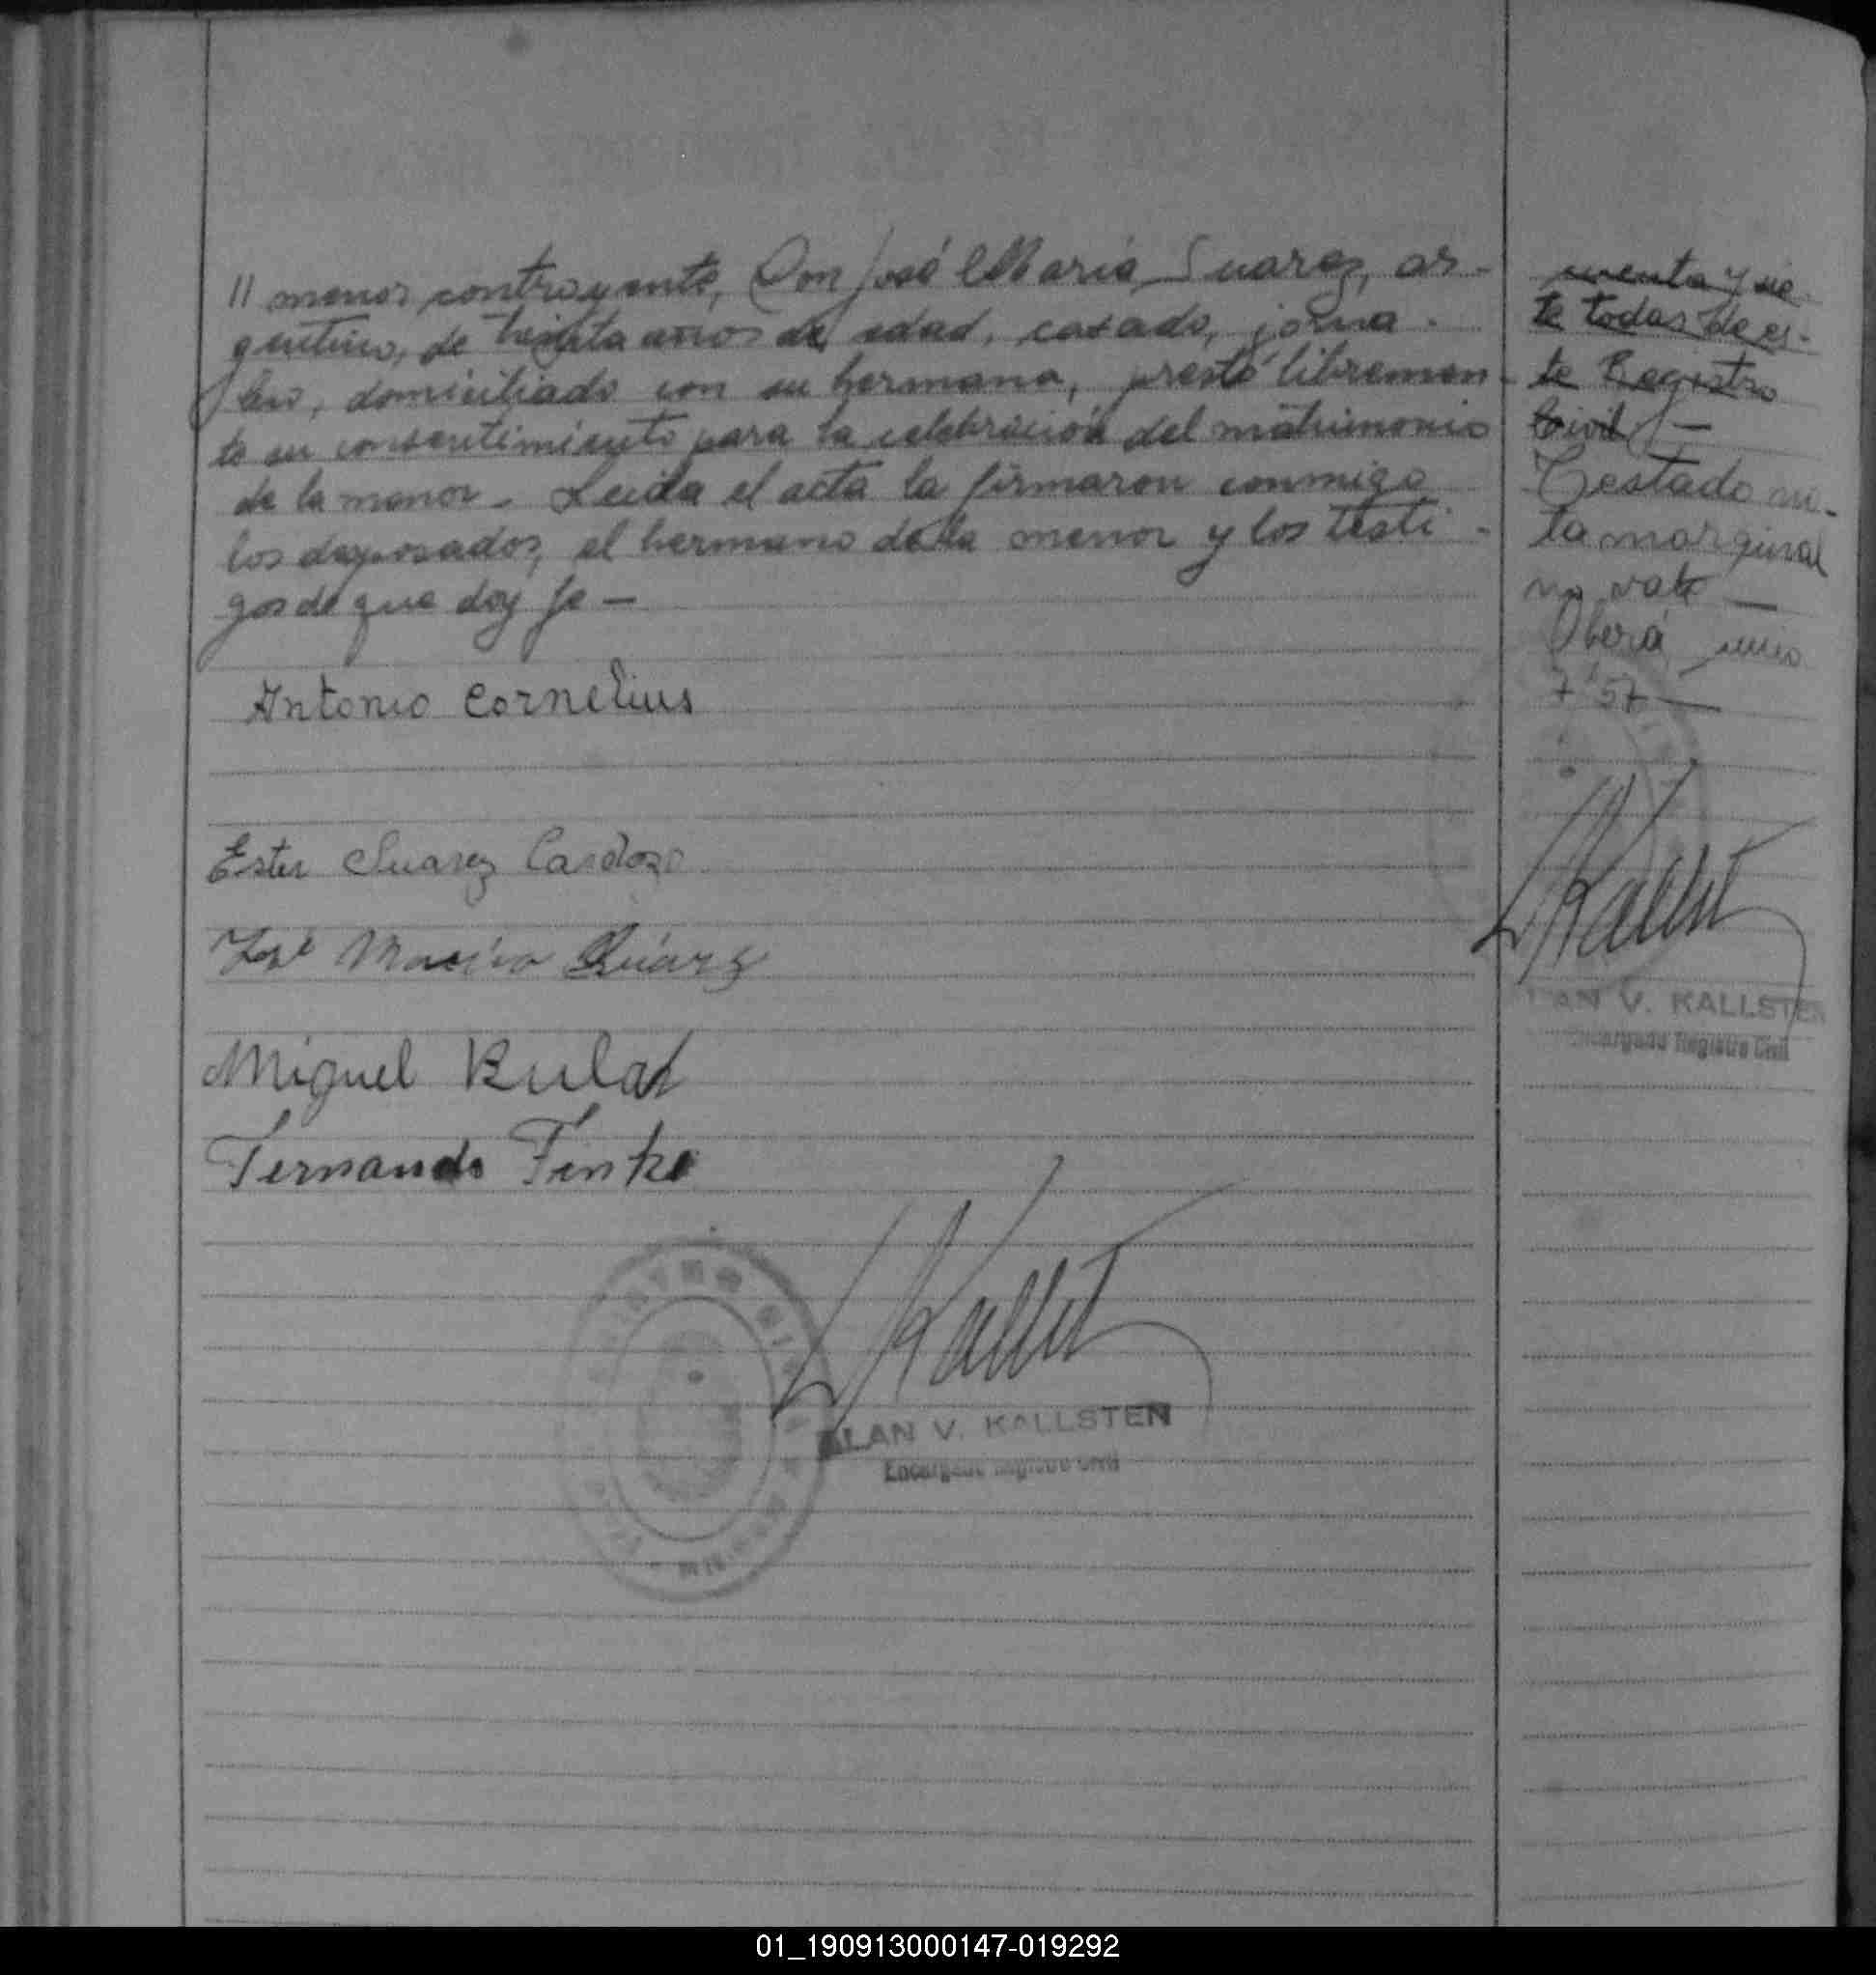 // menor contrayente, Don José Maria Suarez, ar-
gentino, de treinta años de edad, casado, jorna-
lero, domiciliado con su hermana, prestó libremen-
te su consentimiento para la celebración del matrimonio
de la menor. Leida el acta la firmaron conmigo
los desposados, el hermano de la menor y los testi-
gos de que doy fe —
Antonio Cornelius
Ester Suarez Cardozo
José Maria Suárez
Miguel
Fernando Finke
Kallst
ALAN V. KALLSTEN
Encargado Registro Civil
cuenta y sie-
te todas de es-
te Registro
Civil —
Testado no-
ta marginal
no vale —
Oberá junio
7/57 —
Kallst
ALAN V. KALLSTEN
Encargado Registro Civil
01_190913000147-019292